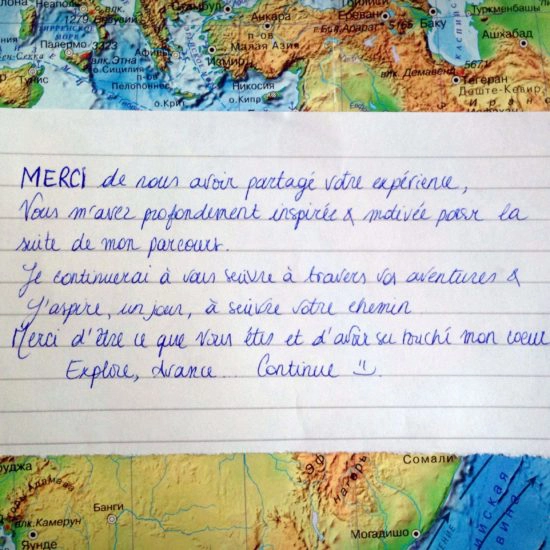 Неаполь
1279
Стамбул
Анкара
Ереван
5165
Баку
Туркменбашы
п-ов
Малая Азия
Ашхабад
Палермо
3323
влк. Этна
о.Сицилия
Афины
Измир
п-ов
Пелопоннес
Тунис
Никосия
о.Крит
о.Кипр
влк. Демавенд
5671
Тегеран
Деште-Кевир
Иран
MERCI de nous avoir partagé votre expérience,
Vous m'avez profondément inspirée & motivée pour la
suite de mon parcours.
Je continuerai à vous suivre à travers vos aventures &
J'aspire, un jour, à suivre votre chemin
Merci d'être ce que vous êtes et d'avoir su touché mon coeur
Explore, Avance... Continue
Сомали
Банги
влк.Камерун
Яунде
Могадишо